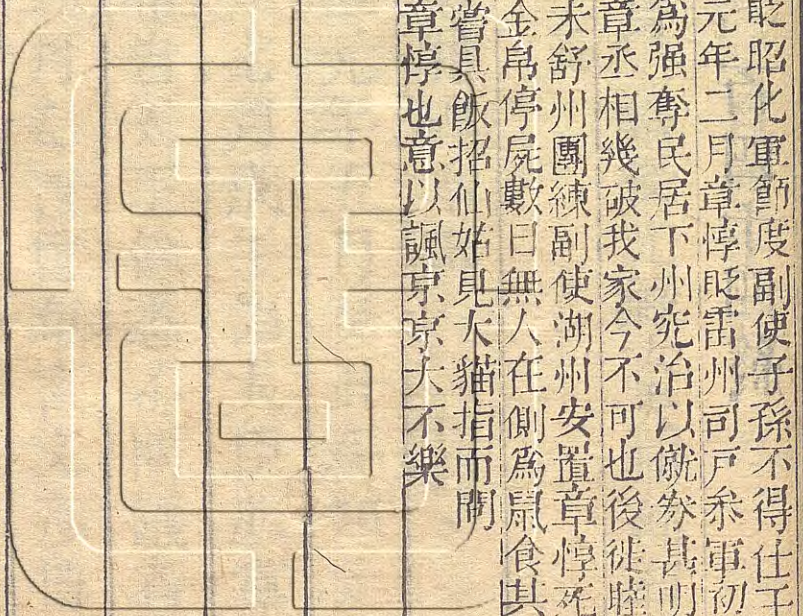 貶昭化軍節度副使子孫不得仕于
元年二月章惇貶雷州司戶叅軍初
爲强奪民居下州究治以僦劵甚明
章丞相幾破我家今不可也後徙睦
未舒州團練副使湖州安置章惇死
金帛停屍數日無人在側爲鼠食其
嘗具飯招仙姑見大貓指而問
章惇也意以諷京京大不樂